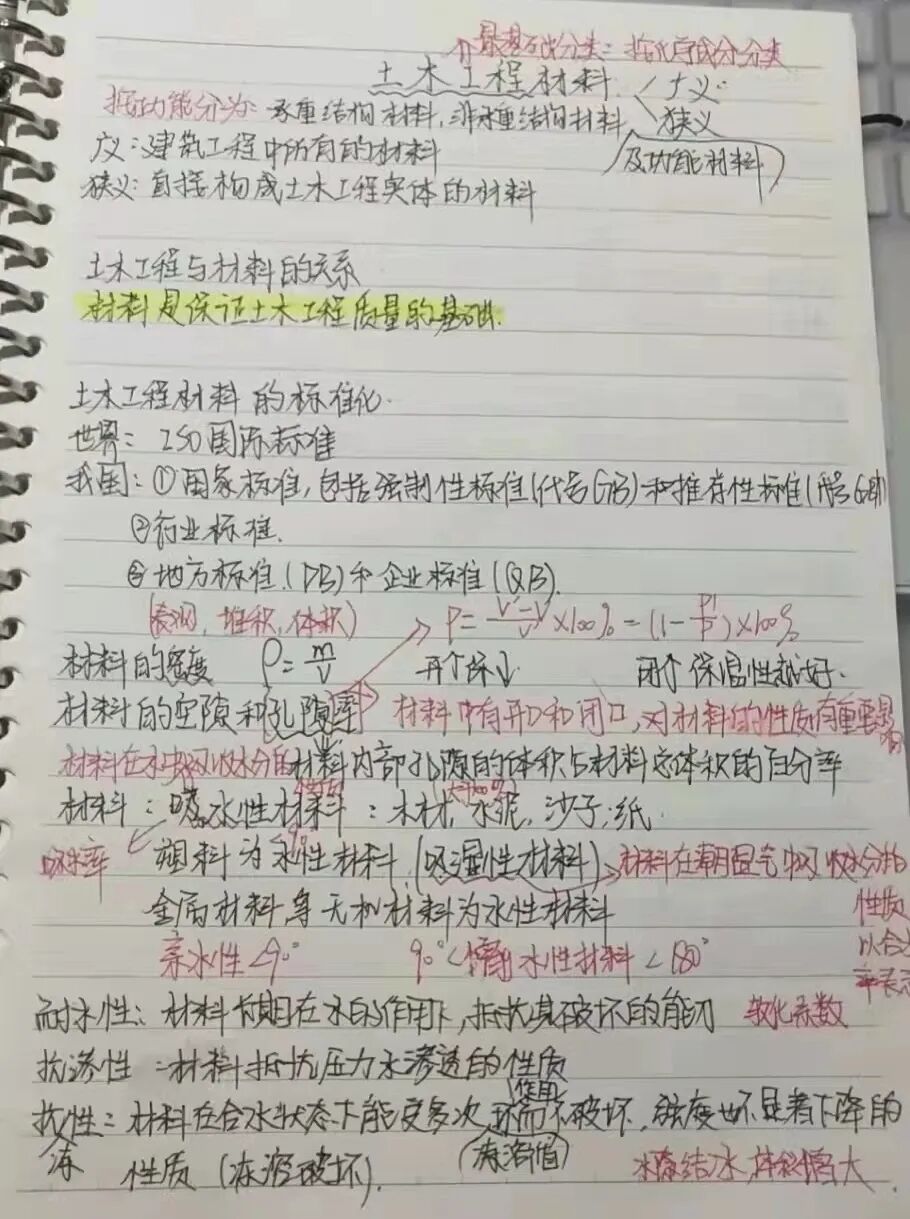 最基础分类：按化学成分分类
土木工程材料 广义
按功能分为：承重结构材料，非承重结构材料 狭义
及功能材料
广义：建筑工程中所有的材料
狭义：直接构成土木工程实体的材料
土木工程与材料的关系
材料是保证土木工程质量的基础.
土木工程材料的标准化.
世界：ISO国际标准
我国：①国家标准，包括强制性标准(代号GB)和推荐性标准(代号GB/T)
②行业标准.
③地方标准(DB)和企业标准(QB).
(表观，堆积，体积) P=(V'-V)/V×100%=(1-ρ'/ρ)×100%
材料的密度 ρ=m/V 开个保↓ 闭个保温性越好.
材料的空隙和孔隙率 材料中有开口和闭口，对材料的性质有重要影响
材料在水中吸收水分的 材料内部孔隙的体积与材料总体积的百分率
材料：吸水性材料：木材，水泥，沙子，纸.
吸水率 塑料为水性材料(吸湿性材料) 材料在潮湿空气中吸收水分的
性质
以含水率表示
金属材料等无机材料为水性材料
亲水性<90° 90°<憎水性材料<180°
耐水性：材料长期在水的作用下，抵抗其破坏的能力 软化系数
抗渗性：材料抵抗压力水渗透的性质
抗冻性：材料在含水状态下能受多次环而不破坏，强度也不显著下降的
作用
冻溶循
性质(冻溶破坏). 水结冰体积增大.